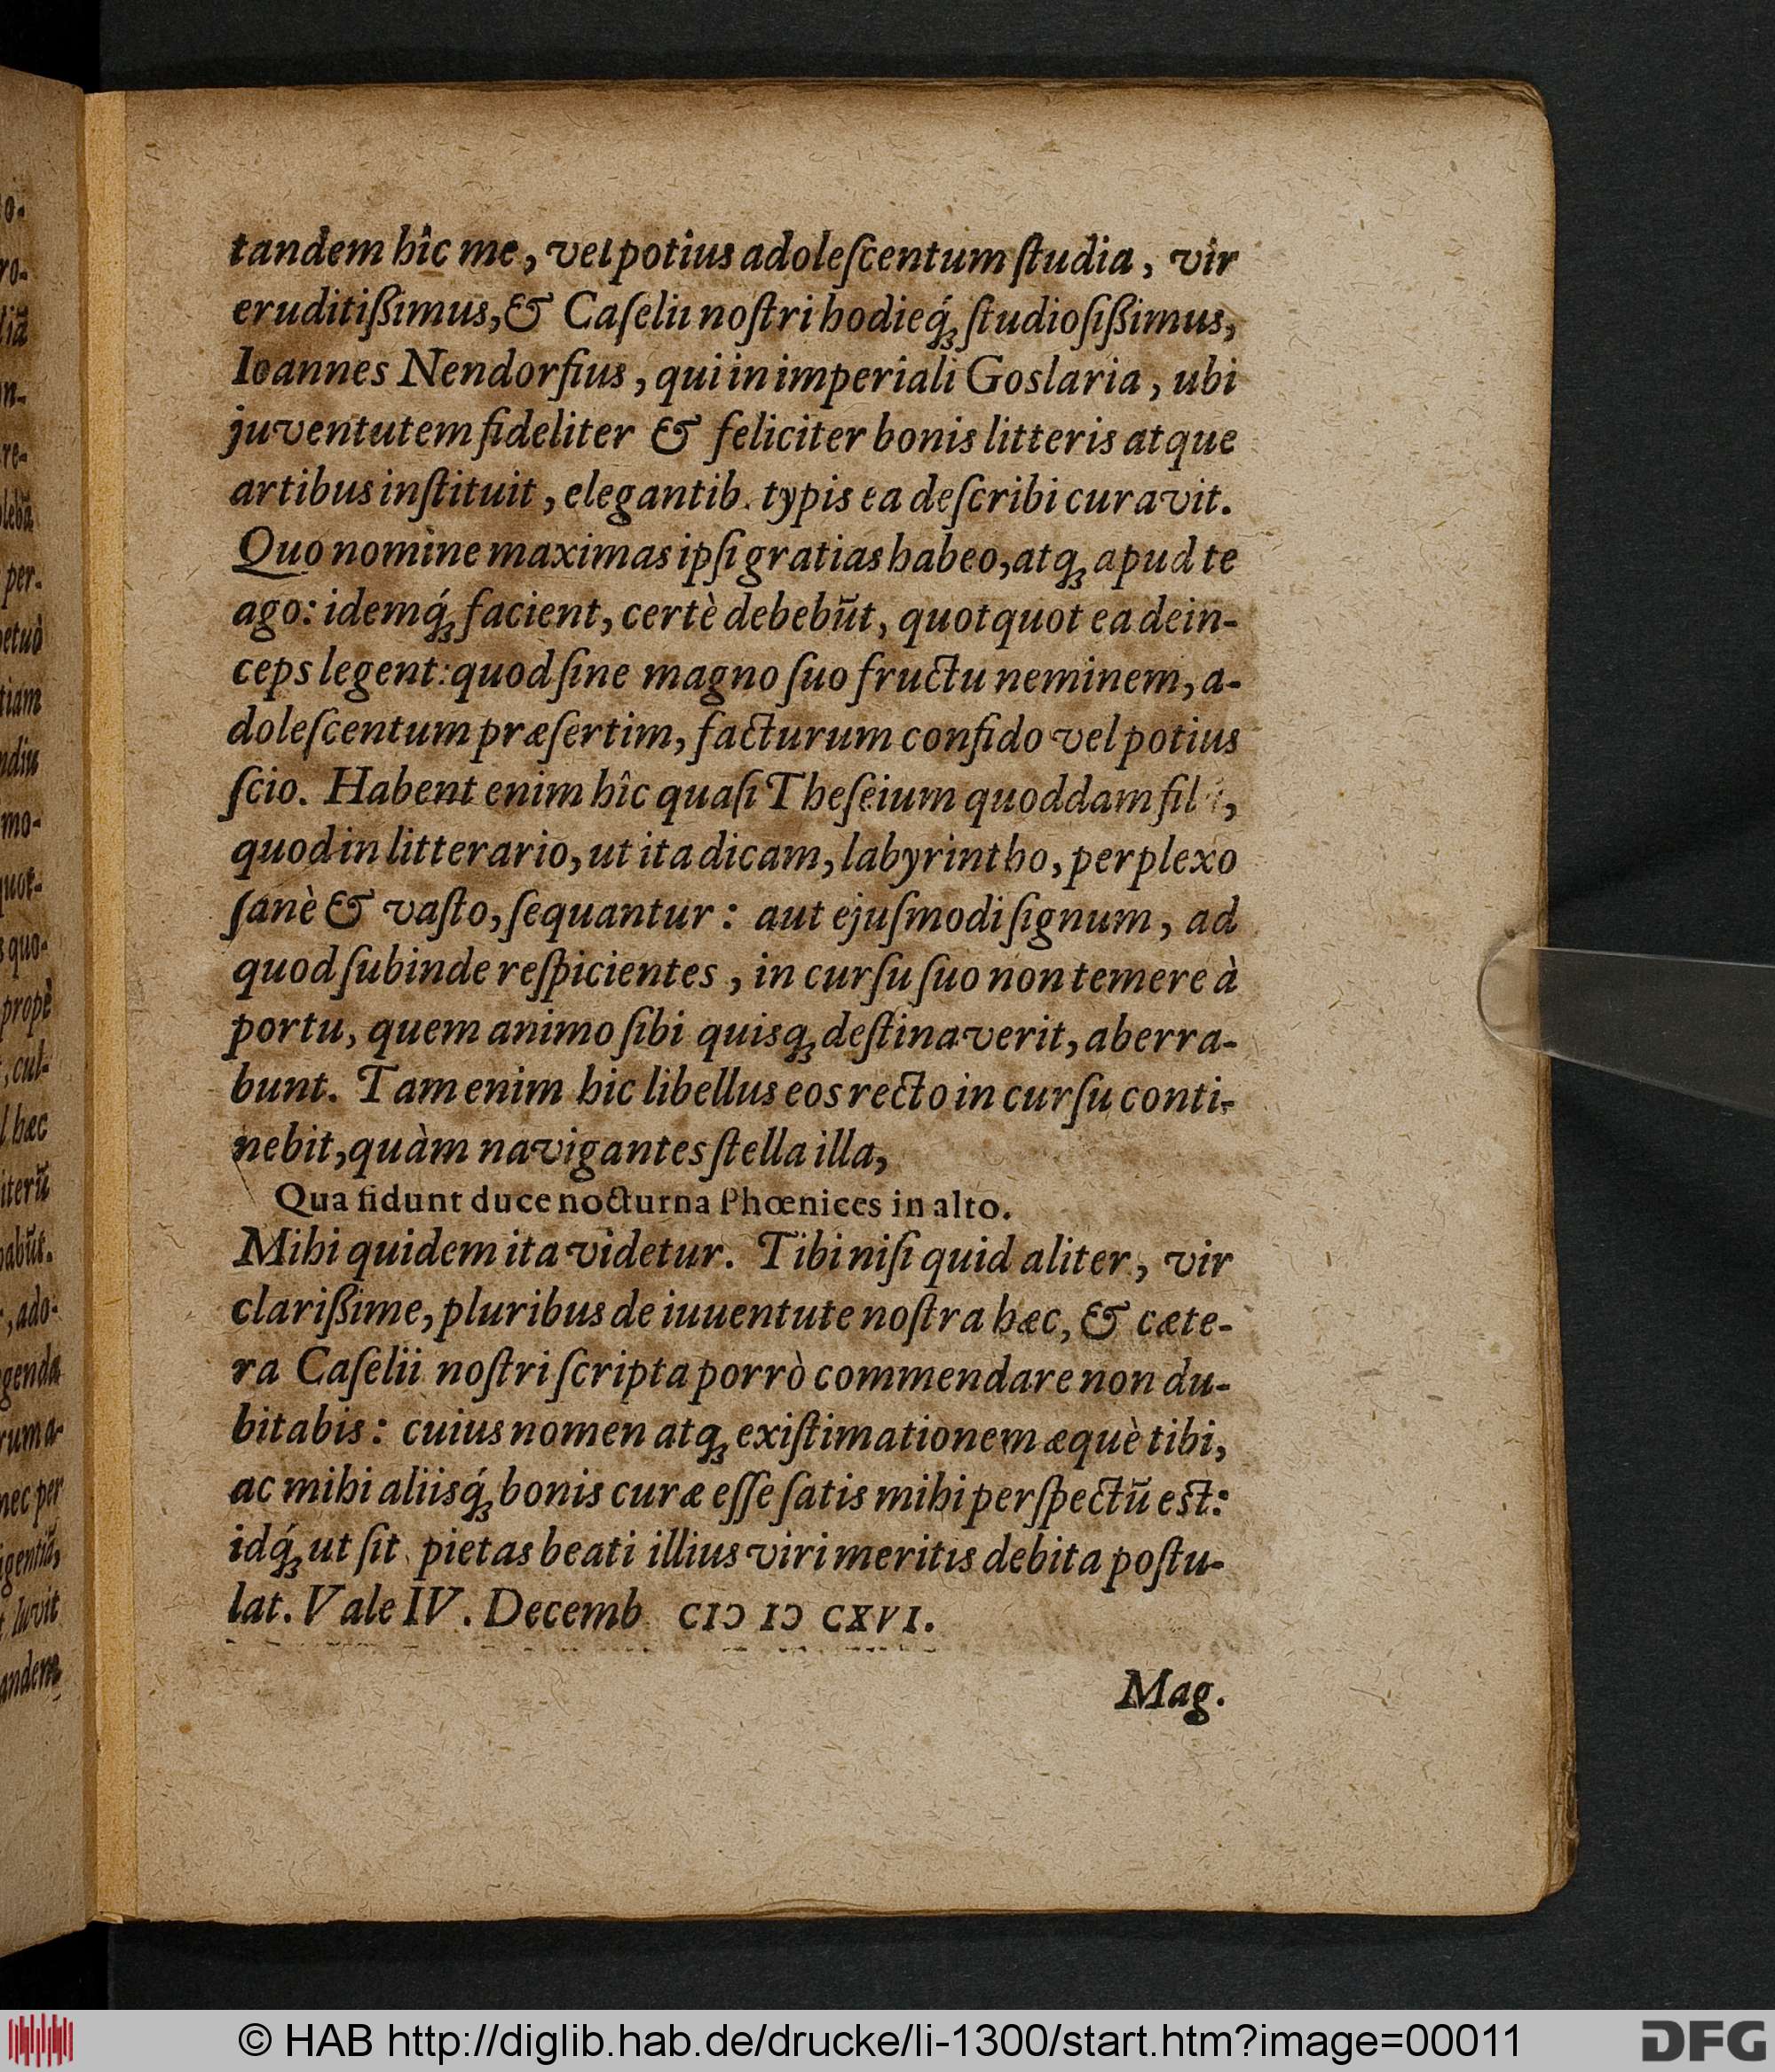 tandem hîc me, vel potius adoleſcentum ſtudia, vir
eruditißimus, & Caſelii noſtri hodieq́ꝫ ſtudioſißimus,
Ioannes Nendorfius, qui in imperiali Goslaria, ubi
juventutem fideliter & feliciter bonis litteris atque
artibus inſtituit, elegantib. typis ea deſcribi curavit.
Quo nomine maximas ipſi gratias habeo, atqꝫ apud te
ago: idemq́ꝫ facient, certè debebūt, quotquot ea dein-
ceps legent: quod ſine magno ſuo fructu neminem, a-
doleſcentum præſertim, facturum confido vel potius
ſcio. Habent enim hîc quaſi Theſeium quoddam
quod in litterario, ut ita dicam, labyrintho, perplexo
ſanè & vaſto, ſequantur: aut ejuſmodi ſignum, ad
quod ſubinde reſpicientes, in curſu ſuo non temere à
portu, quem animo ſibi quisqꝫ deſtinaverit, aberra-
bunt. Tam enim hic libellus eos recto in curſu conti-
nebit, quàm navigantes ſtella illa,
Qua fidunt duce nocturna Phœnices in alto.
Mihi quidem ita videtur. Tibi niſi quid aliter, vir
clarißime, pluribus de iuuentute noſtra hæc, & cæte-
ra Caſelii noſtri ſcripta porrò commendare non du-
bitabis: cuius nomen atqꝫ exiſtimationem æquè tibi,
ac mihi aliisq́ꝫ bonis curæ eſſe ſatis mihi perſpectū eſt:
idq́ꝫ ut ſit pietas beati illius viri meritis debita poſtu-
lat. Vale IV. Decemb CIↃ IↃ CXVI.
Mag.
© HAB http://diglib.hab.de/drucke/li-1300/start.htm?image=00011
DFG